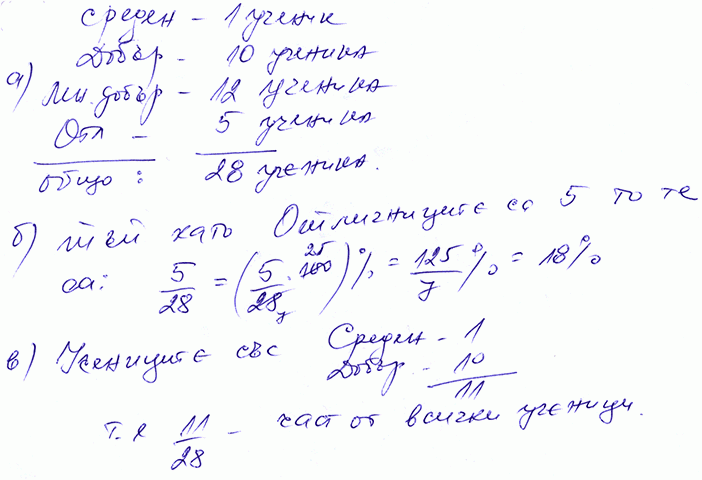 Среден - 1 ученик
Добър - 10 ученика
а) Мн. добър - 12 ученика
Отл - 5 ученика
общо: 28 ученика.
б) тъй като Отличниците са 5 то те
са: 5/28 = (5/28 7 . 100 25)% = 125/7 % = 18%
в) Усениците със Среден - 1
Добър - 10
11
т.е 11/28 - част от всички ученици.